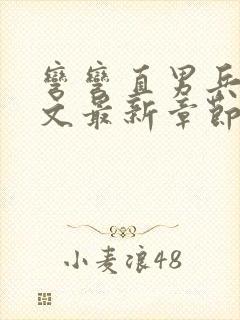 彎彎直男兵
文最新章節
小麦浪48